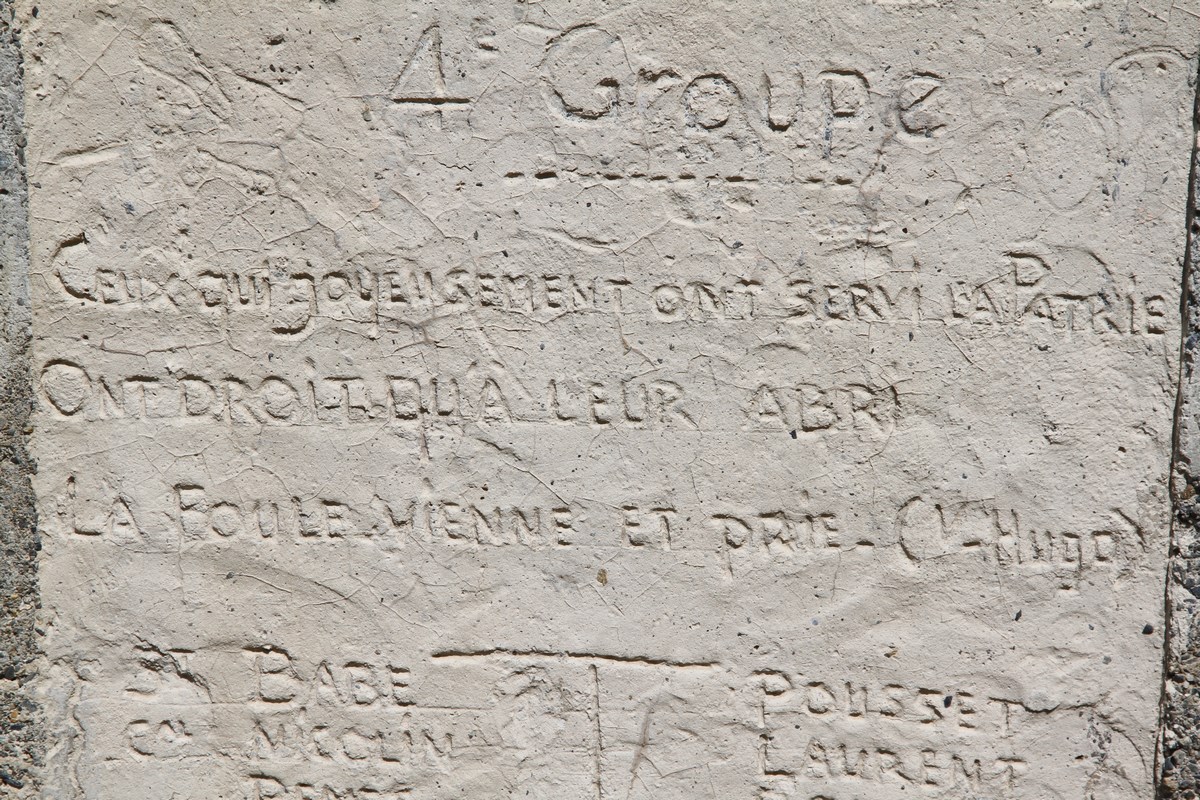 4E Groupe
Ceux qui joyeusement ont servi la Patrie
Ont droit qu'a leur abri
La Foule vienne et prie - (V. Hugo)
St Babe Pousset
Cal Laurent